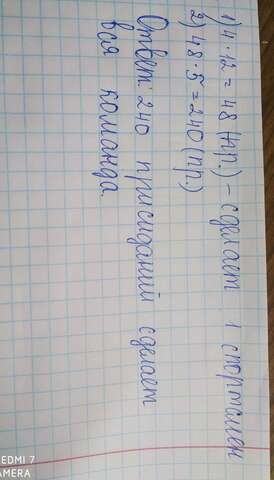 1) 4 · 12 = 48 (пр.) - сделает 1 спортсмен
2) 48 · 5 = 240 (пр.)
Ответ: 240 приседаний сделает
вся команда.
EDMI 7
AMERA